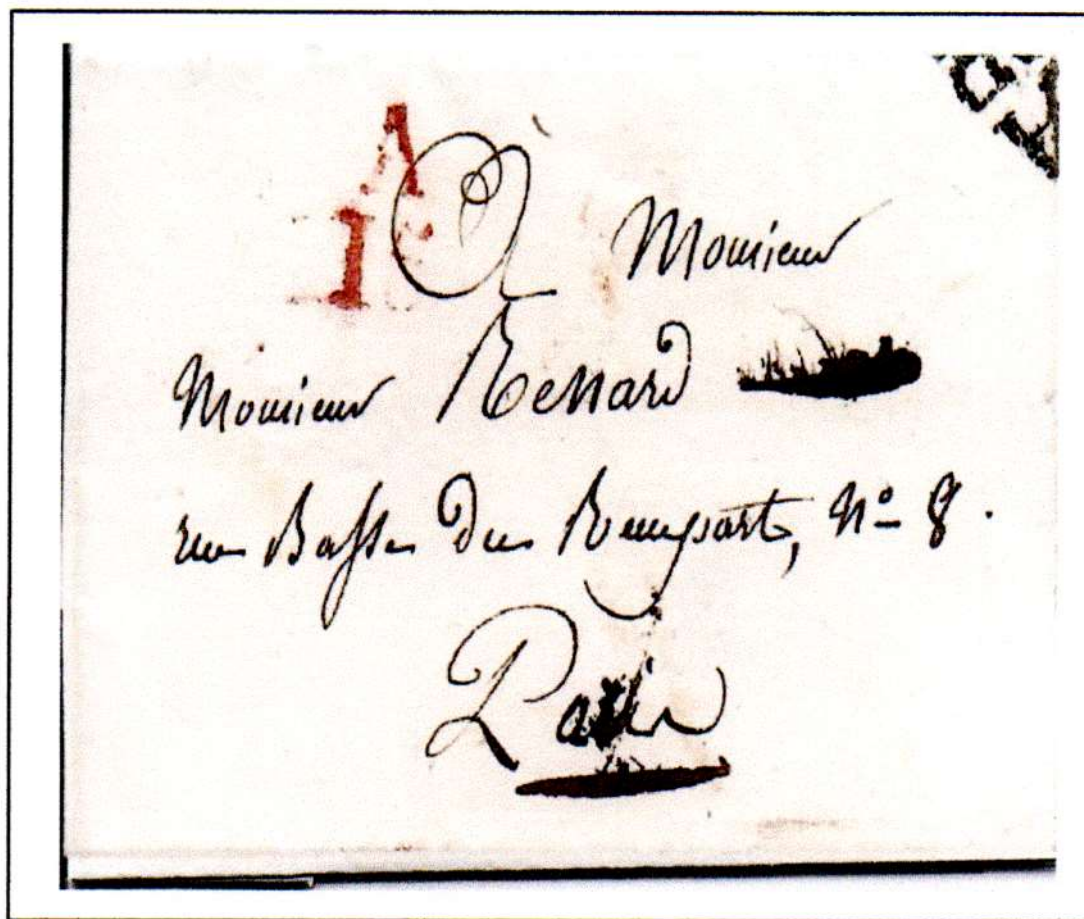 A
1
A Monsieur
Monsieur Renard
rue Basse du Rempart, N° 8.
Paris